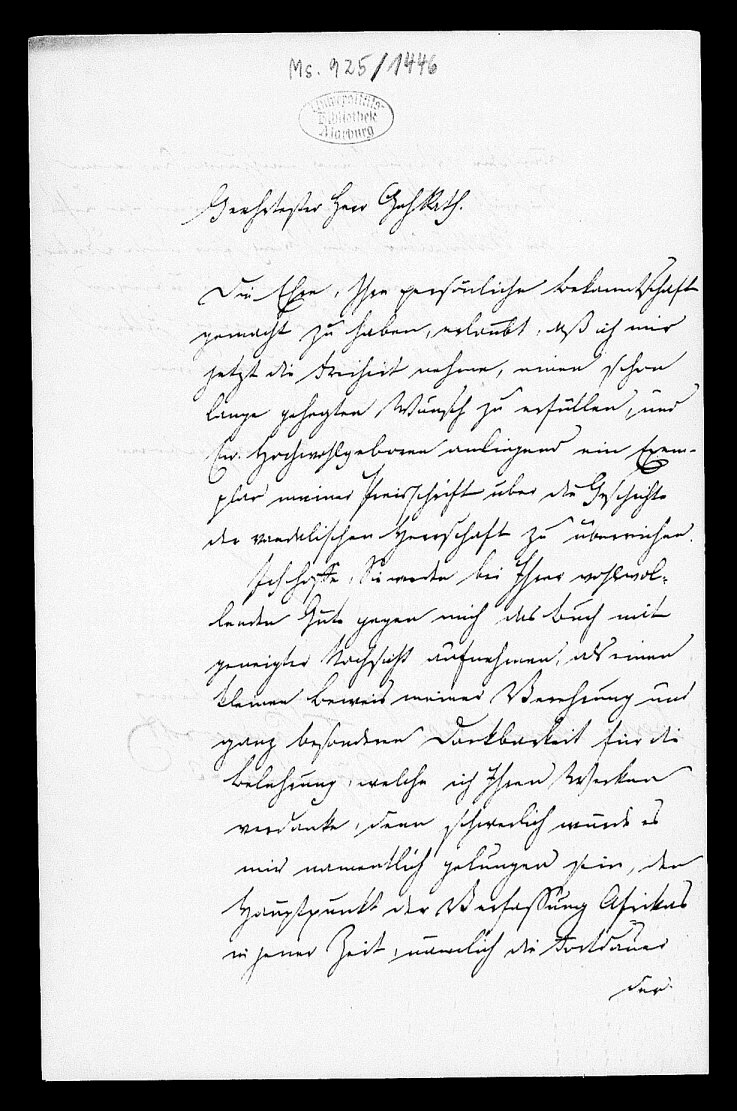 Ms. 725/1446
Universitäts-
Bibliothek
Marburg
Geehrtester Herr GehRath.
Die Ehre, Ihre persönliche Bekanntschaft
gemacht zu haben, erlaubt, daß ich mir
jetzt die Freiheit nehme, einen schon
lange gehegten Wunsch zu erfüllen, und
Ew. Hochwohlgeboren anliegend ein Exem-
plar meiner Preisschrift über die Geschichte
der vandalischen Herrschaft zu überreichen.
Ich hoffe, Sie werden bei Ihrer wohlwol-
lenden Güte gegen mich das Buch mit
geneigter Nachsicht aufnehmen, als einen
kleinen Beweis meiner Verehrung und
ganz besonderen Dankbarkeit für die
Belehrung, welche ich Ihren Werken
verdanke, denn schwerlich würde es
mir namentlich gelungen sein, den
Hauptpunkt der Verfassung Afrikas
in jener Zeit, nämlich die Fortdauer
der